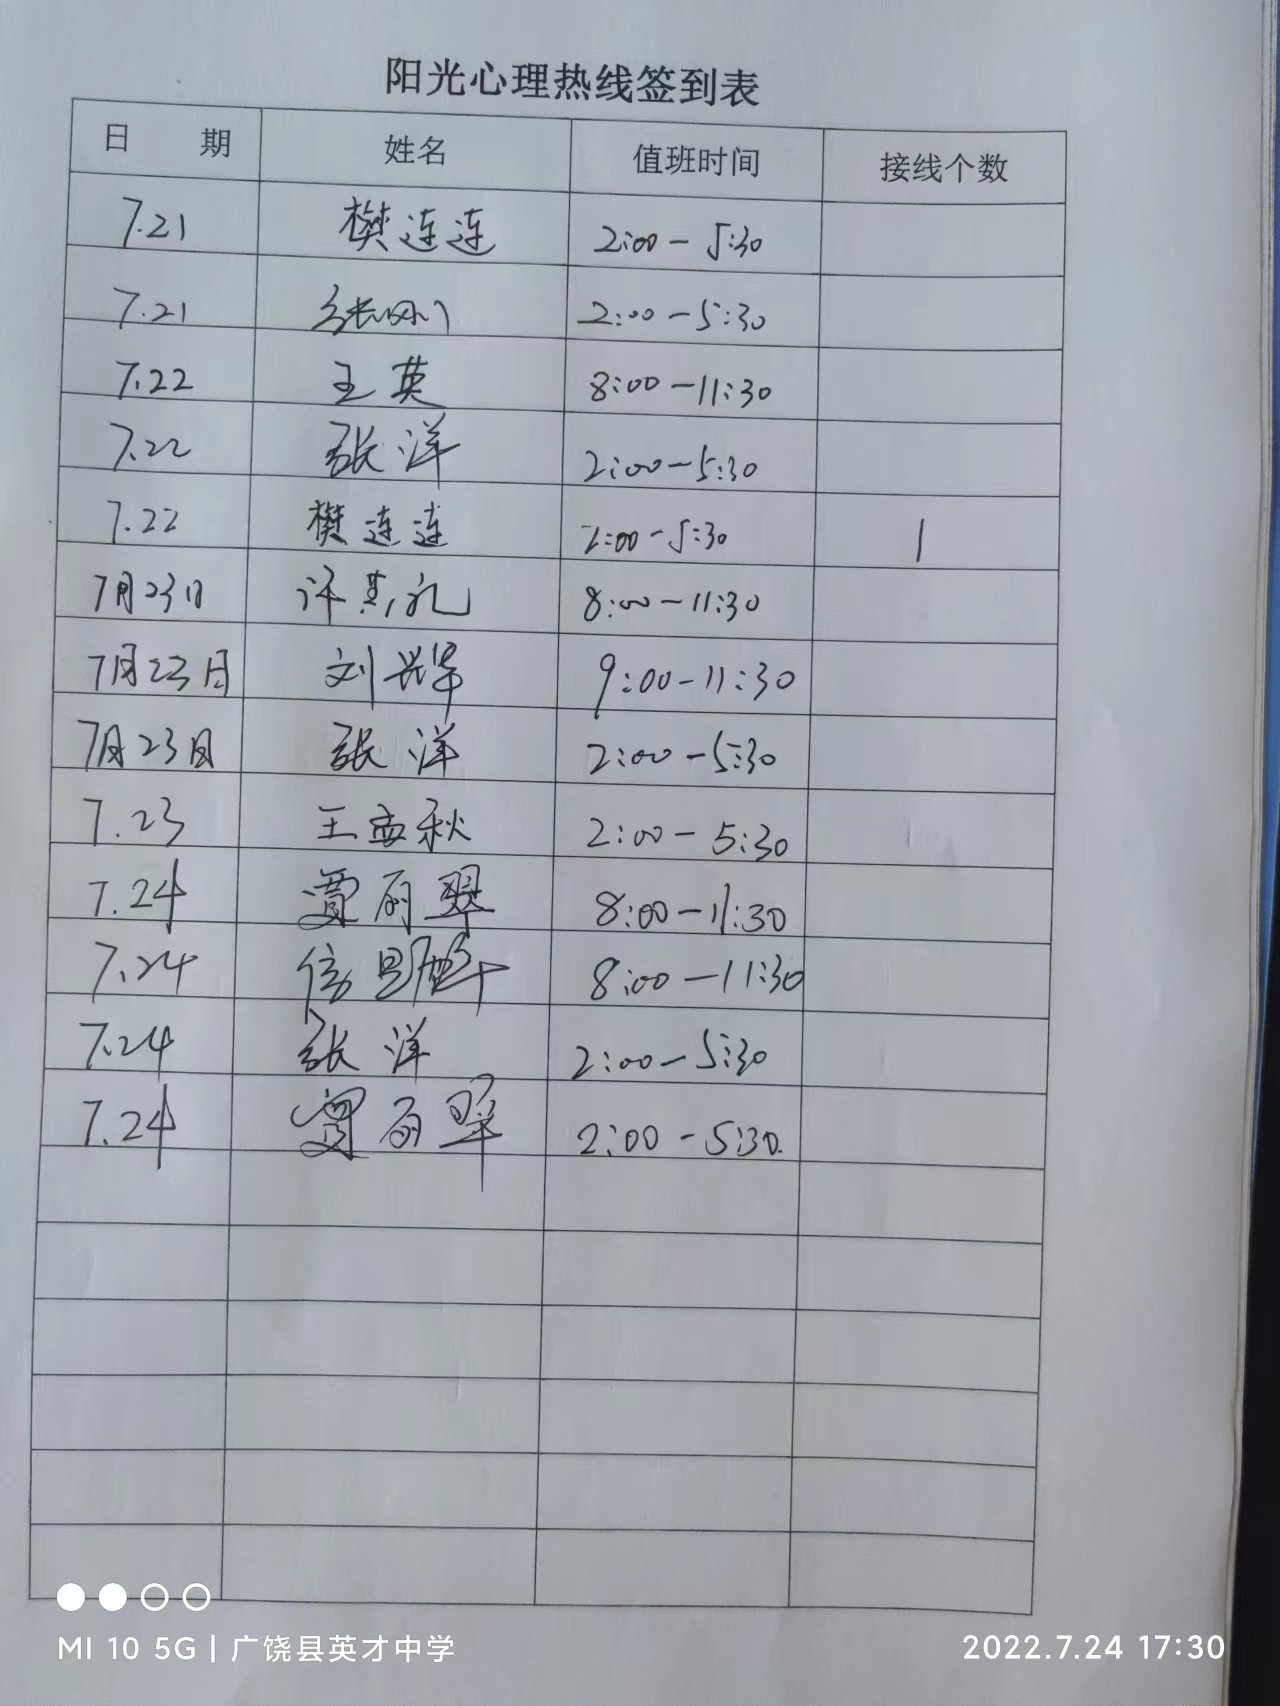 阳光心理热线签到表
日 期 姓名 值班时间 接线个数
7.21 樊连连 2:00-5:30
7.21 2:00-5:30
7.22 王英 8:00-11:30
7.22 张洋 2:00-5:30
7.22 樊连连 2:00-5:30 1
7月23日 许其礼 8:00-11:30
7月23日 刘兴华 9:00-11:30
7月23日 张洋 2:00-5:30
7.23 王孟秋 2:00-5:30
7.24 贾丽翠 8:00-11:30
7.24 信 8:00-11:30
7.24 张洋 2:00-5:30
7.24 贾丽翠 2:00-5:30
MI 10 5G | 广饶县英才中学
2022.7.24 17:30